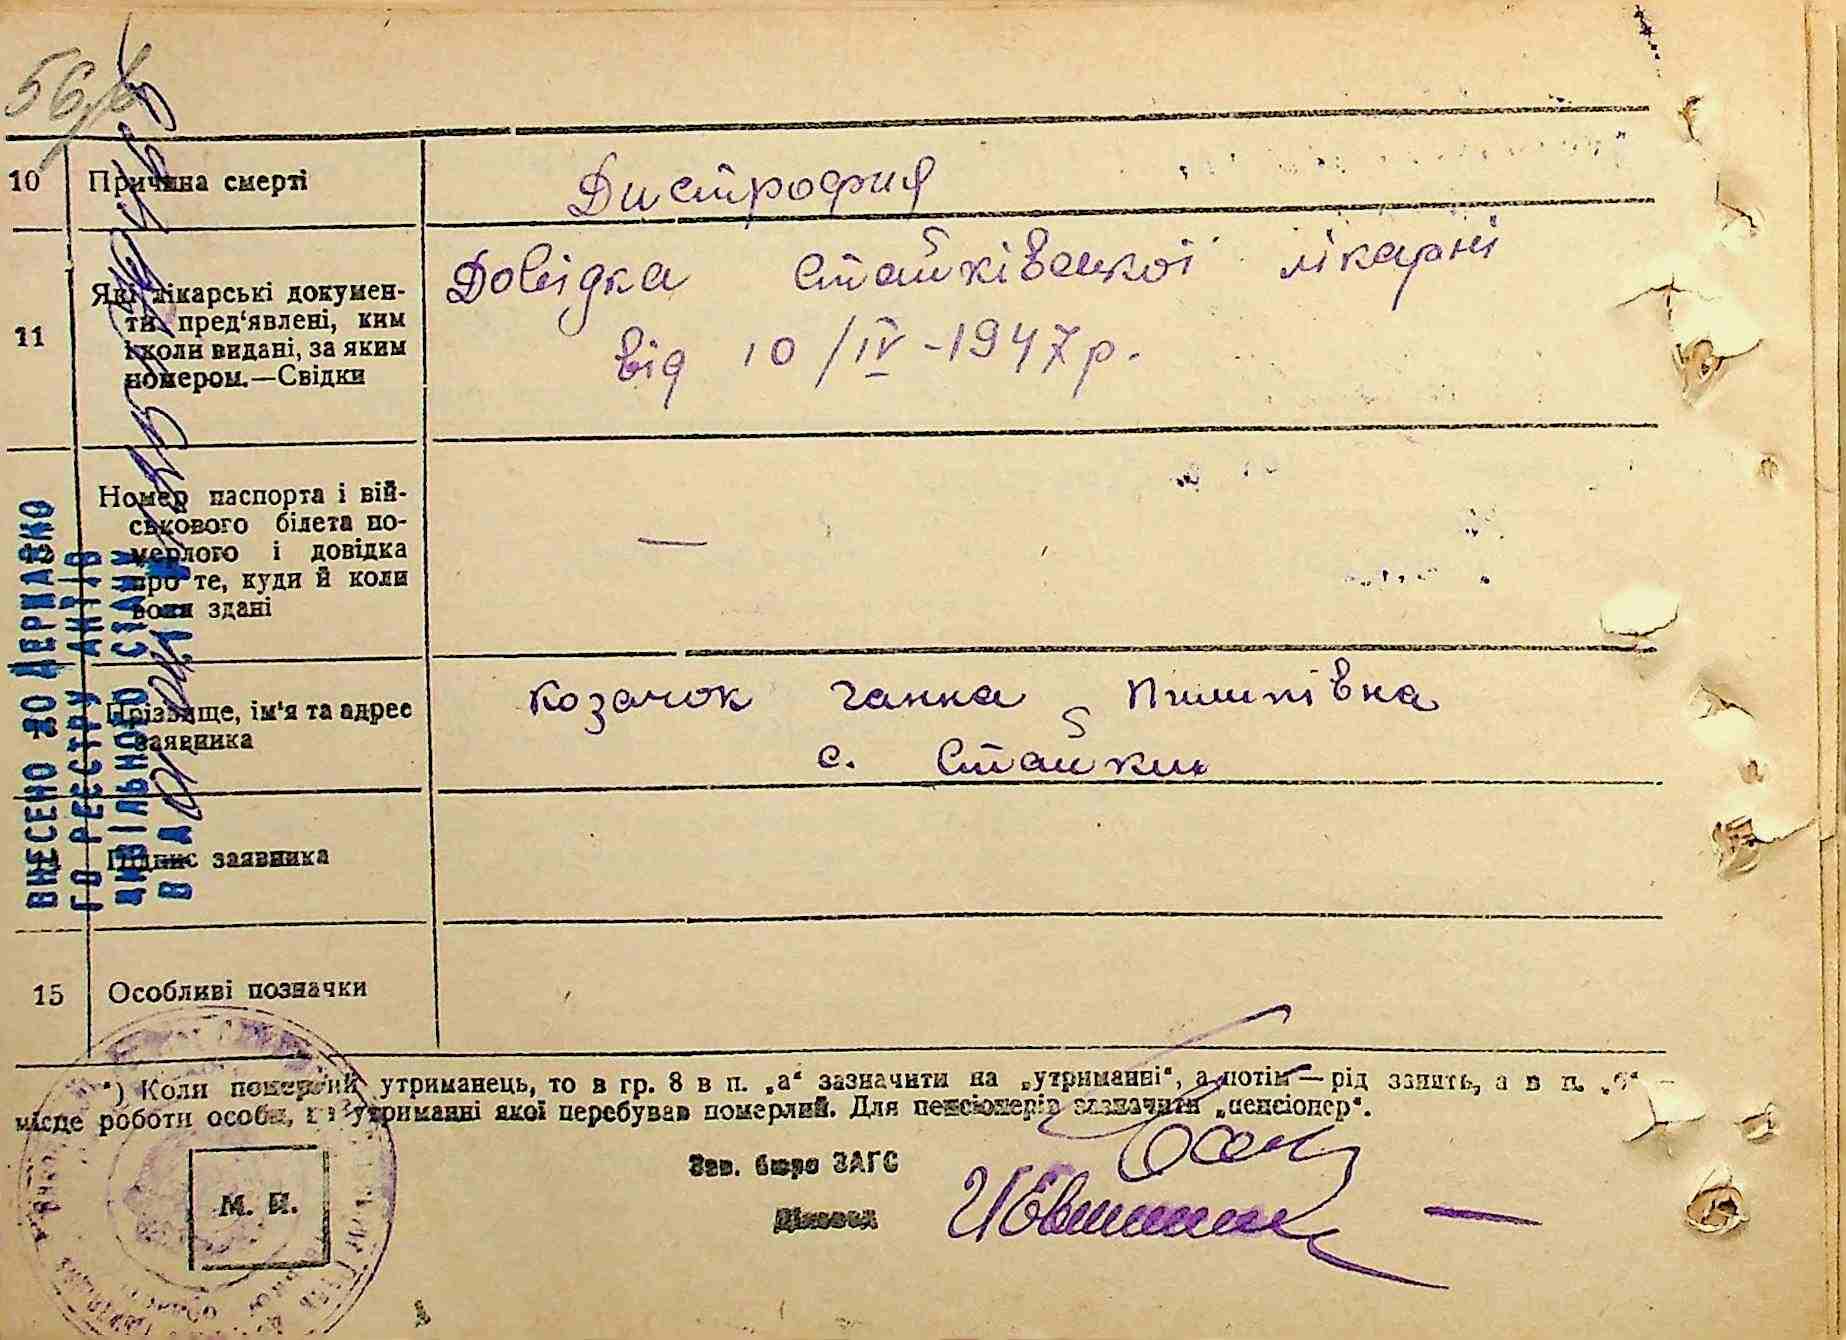 56
10 Причина смерті Дистрофия
11 Які лікарські докумен-
ти пред'явлені, ким
і коли видані, за яким
номером.—Свідки
Довідка Стайківської лікарні
від 10/IV-1947р.
Номер паспорта і вій-
ськового білета по-
мерлого і довідка
про те, куди й коли
вони здані
—
Прізвище, ім'я та адрес
заявника
Козачок Ганна Пилипівна
с. Стайки
Підпис заявника
15 Особливі позначки
ВНЕСЕНО ДО ДЕРЖАВНО
ГО РЕЄСТРУ АКТІВ
ЦИВІЛЬНОГО СТАНУ
*) Коли померлий утриманець, то в гр. 8 в п. „а“ зазначити на „утриманні“, а потім — рід занять, а в п. „б“ —
місце роботи особи, на утриманні якої перебував померлий. Для пенсіонерів зазначити „пенсіонер“.
Зав. бюро ЗАГС
М. П.
Діловод